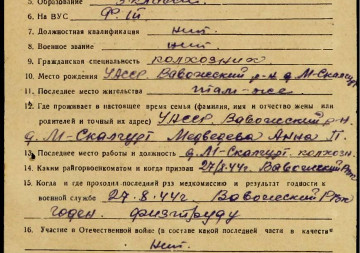 5. Образование 3 класса
6. На ВУС
7. Должностная квалификация нит
8. Военное звание нит
9. Гражданская специальность колхозник
10. Место рождения УАССР. Вавожский р-н д. М-Скалгурт
11. Последнее место жительства там-же
12. Где проживает в настоящее время семья (фамилия, имя и отчество жены или
родителей и точный их адрес) УАССР. Вавожский р-н.
д. М-Скалгурт Медведева Анна П.
13. Последнее место работы и должность д. М-Скалгурт. колхозн.
14. Каким райгорвоенкоматом и когда призван 27/8.44г. Вавожский
15. Когда и где проходил последний раз медкомиссию и результат годности к
военной службе 27.8.44г. Вавожский
годен. физтруду
16. Участие в Отечественной войне (в составе какой последней части и в качестве
Нит.